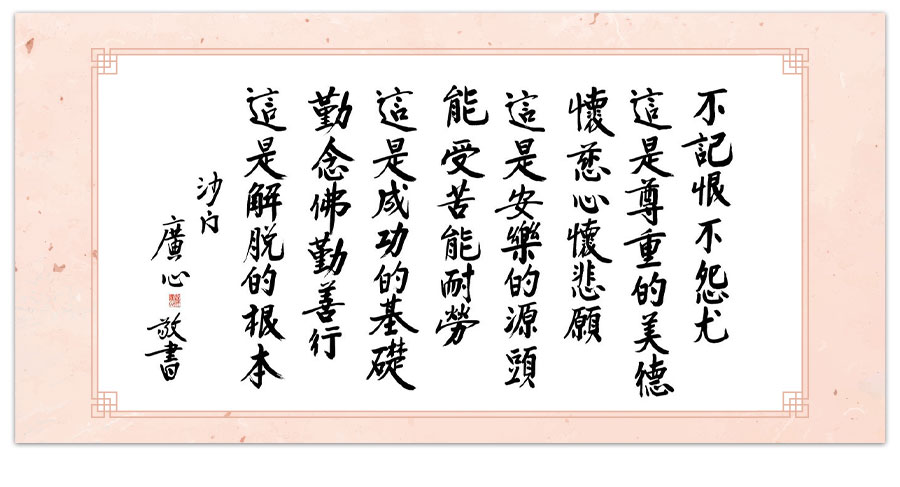 不記恨不怨尤
這是尊重的美德
懷慈心懷悲願
這是安樂的源頭
能受苦能耐勞
這是成功的基礎
勤念佛勤善行
這是解脫的根本
沙門
廣心
敬書